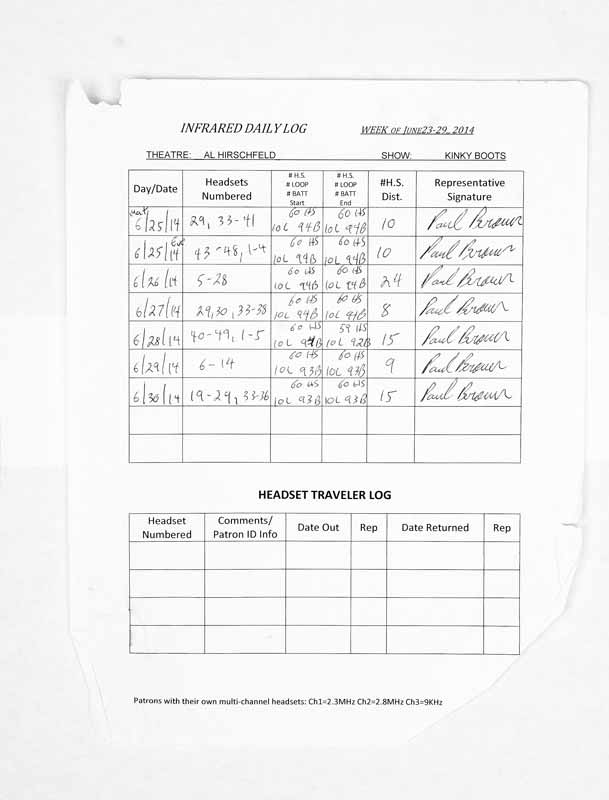 INFRARED DAILY LOG WEEK OF JUNE23-29, 2014
THEATRE: AL HIRSCHFELD SHOW: KINKY BOOTS
Day/Date Headsets Numbered # H.S. # LOOP # BATT Start # H.S. # LOOP # BATT End #H.S. Dist. Representative Signature
Mat 6/25/14 29, 33-41 60 HS 10L 94B 60 HS 10L 94B 10 Paul Brown
6/25/14 Eve 43-48, 1-4 60 HS 10L 94B 60 HS 10L 94B 10 Paul Brown
6/26/14 5-28 60 HS 10L 94B 60 HS 10L 94B 24 Paul Brown
6/27/14 29,30, 33-38 60 HS 10L 94B 60 HS 10L 94B 8 Paul Brown
6/28/14 40-49, 1-5 60 HS 10L 94B 59 HS 10L 92B 15 Paul Brown
6/29/14 6-14 60 HS 10L 93B 60 HS 10L 93B 9 Paul Brown
6/30/14 19-29, 33-36 60 HS 10L 93B 60 HS 10L 93B 15 Paul Brown
HEADSET TRAVELER LOG
Headset Numbered Comments/ Patron ID Info Date Out Rep Date Returned Rep
Patrons with their own multi-channel headsets: Ch1=2.3MHz Ch2=2.8MHz Ch3=9KHz